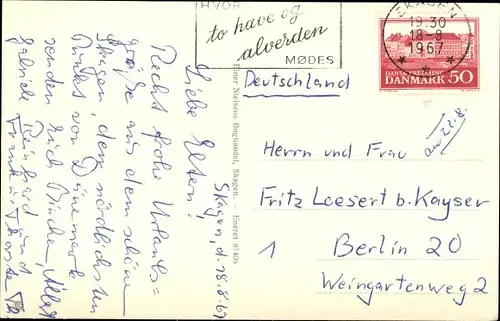 HVOR
to have og
alverden
MØDES
SKAGEN
19.30
18-8
1967
DANSK FREDNING
DANMARK 50
Deutschland
an 22.8.
Herrn und Frau
Fritz Loesert b. Kayser
1 Berlin 20
Weingartenweg 2
Einer Nielsens Boghandel, Skagen. - Eneret 87406
Skagen, d. 18.8.67
Liebe Eltern!
Recht frohe Urlaubs=
grüße aus dem schönen
Skagen, dem nördlichsten
Punkt von Dänemark
senden Euch
Reinhard und
Gabriele Frank u.